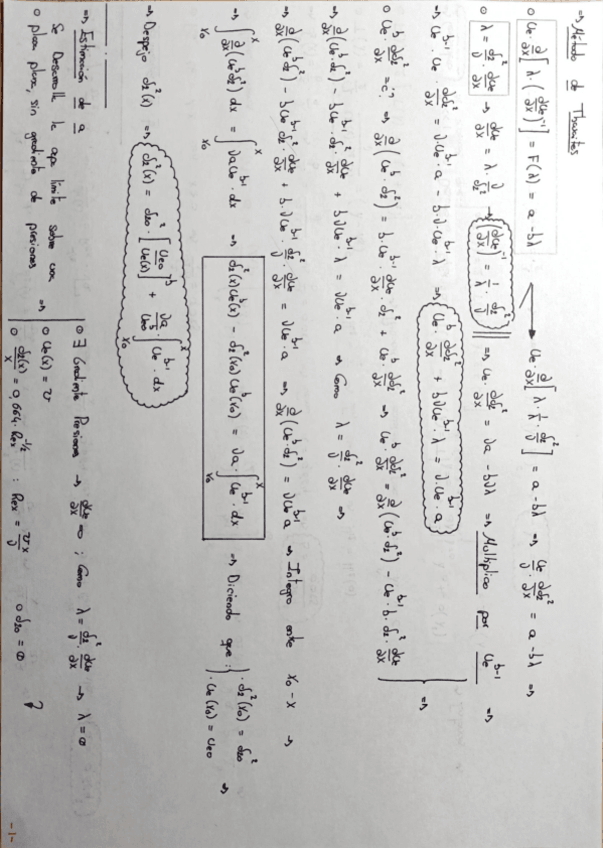 ⇒ Método de Thwaites
○ Ue · ∂/∂x [λ · (∂Ue/∂x)⁻¹] = F(λ) = a - bλ → Ue · ∂/∂x [λ · 1/λ · δ₂²/ν] = a - bλ ⇒ Ue/ν · ∂δ₂²/∂x = a - bλ ⇒
○ λ = δ₂²/ν · ∂Ue/∂x → ∂Ue/∂x = λ · ν/δ₂² → (∂Ue/∂x)⁻¹ = 1/λ · δ₂²/ν ⇒ Ue · ∂δ₂²/∂x = νa - bνλ ⇒ Multiplico por Ue^(b-1) ⇒
⇒ Ue^(b-1) · Ue · ∂δ₂²/∂x = ν · Ue^(b-1) · a - b · ν · Ue^(b-1) · λ ⇒ Ue^b · ∂δ₂²/∂x + bνUe^(b-1) · λ = ν · Ue^(b-1) · a
○ Ue^b · ∂δ₂²/∂x = ¿? ⇒ ∂/∂x (Ue^b · δ₂²) = b · Ue^(b-1) · ∂Ue/∂x · δ₂² + Ue^b · ∂δ₂²/∂x ⇒ Ue^b · ∂δ₂²/∂x = ∂/∂x (Ue^b · δ₂²) - Ue^(b-1) · b · δ₂² · ∂Ue/∂x ⇒
⇒ ∂/∂x (Ue^b · δ₂²) - b Ue^(b-1) · δ₂² · ∂Ue/∂x + bνUe^(b-1) · λ = νUe^(b-1) · a ⇒ Como λ = δ₂²/ν · ∂Ue/∂x ⇒
⇒ ∂/∂x (Ue^b δ₂²) - bUe^(b-1) δ₂² · ∂Ue/∂x + b · νUe^(b-1) · δ₂²/ν · ∂Ue/∂x = νUe^(b-1) · a ⇒ ∂/∂x (Ue^b · δ₂²) = νUe^(b-1) a ⇒ Integro entre x₀ - x ⇒
⇒ ∫ₓ₀ˣ ∂/∂x (Ue^b δ₂²) dx = ∫ₓ₀ˣ νa Ue^(b-1) · dx ⇒ δ₂²(x) Ue^b(x) - δ₂²(x₀) Ue^b(x₀) = νa · ∫ₓ₀ˣ Ue^(b-1) · dx ⇒ Diciendo que: · δ₂²(x₀) = δ₂₀²
· Ue(x₀) = Ue₀ ⇒
⇒ Despejo δ₂²(x) ⇒ δ₂²(x) = δ₂₀² · [Ue₀/Ue(x)]^b + νa/Ue^b · ∫ₓ₀ˣ Ue^(b-1) · dx
⇒ Estimación de a
Se Desarrolla la capa límite sobre una
○ placa plana, sin gradiente de presiones ⇒
○ ∄ Gradiente Presiones → ∂Ue/∂x = 0 ; Como λ = δ₂²/ν · ∂Ue/∂x → λ = 0
○ Ue(x) = U
○ δ₂(x)/x = 0,664 · Rex^(-1/2) : Rex = Ux/ν ○ δ₂₀ = 0